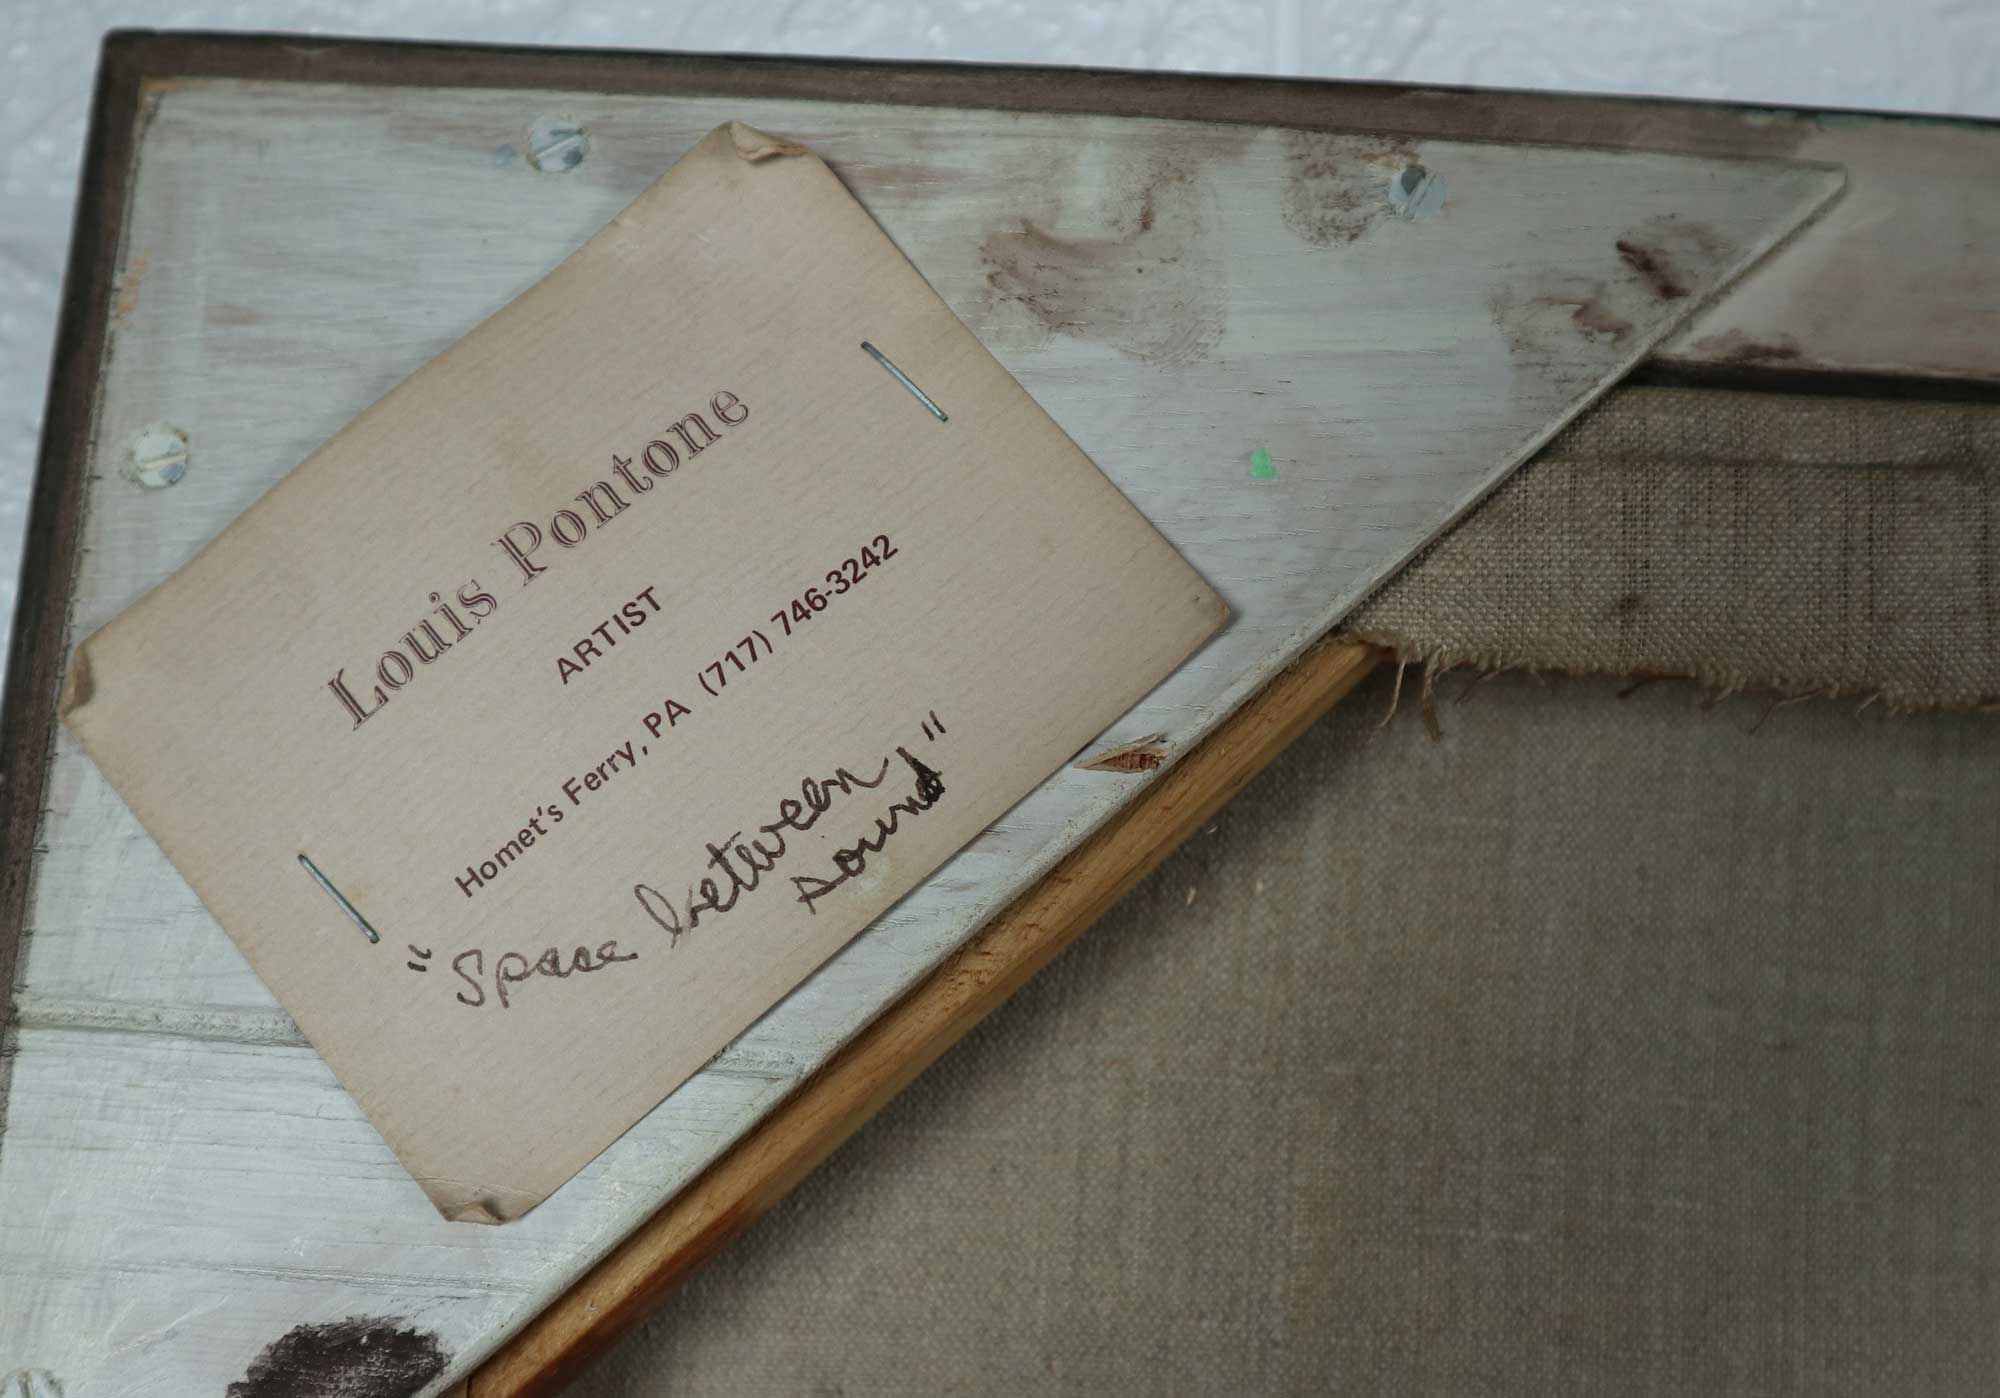 Louis Pontone
ARTIST
Homet's Ferry, PA (717) 746-3242
"Space between
sound"